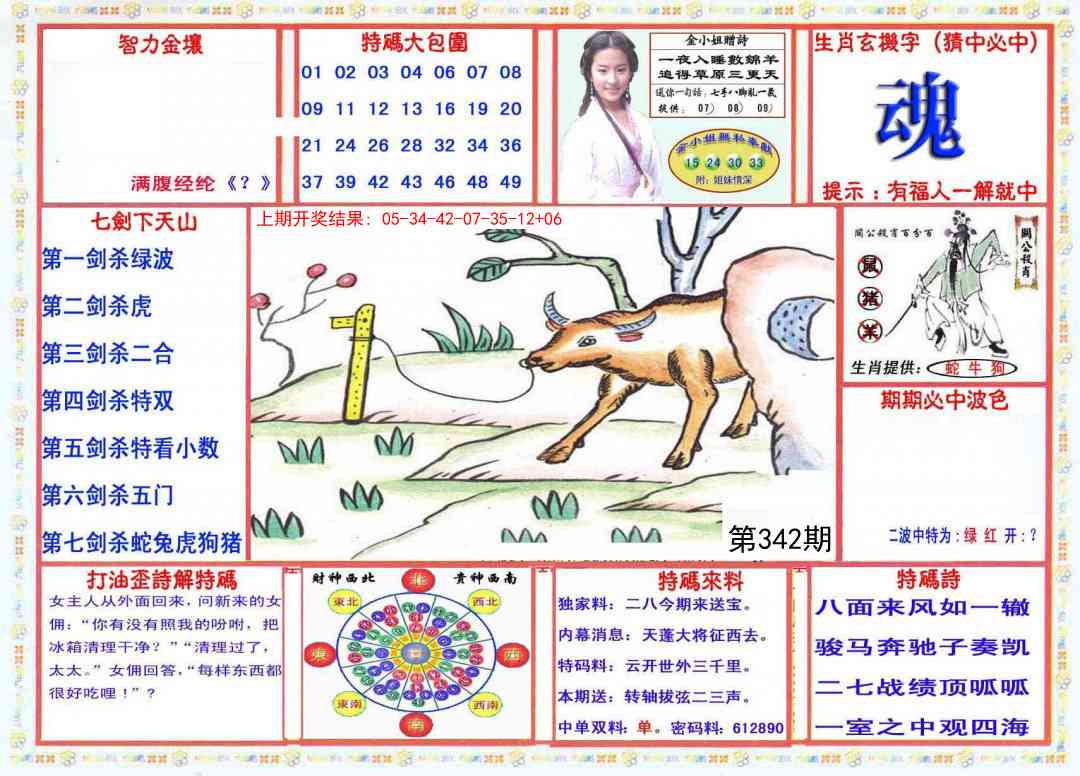 智力金壤
满腹经纶《？》
特碼大包圍
01 02 03 04 06 07 08
09 11 12 13 16 19 20
21 24 26 28 32 34 36
37 39 42 43 46 48 49
金小姐赠詩
一夜入睡數錦羊
追得草原三更天
送你一句話：七手八脚亂一氣
提供：07）08）09）
金小姐無私奉獻
15 24 30 33
附：姐妹情深
生肖玄機字（猜中必中）
魂
提示：有福人一解就中
七劍下天山
第一剑杀绿波
第二剑杀虎
第三剑杀二合
第四剑杀特双
第五剑杀特看小数
第六剑杀五门
第七剑杀蛇兔虎狗猪
上期开奖结果：05-34-42-07-35-12+06
第342期
關公殺肖百分百
關公殺肖
鼠
猪
羊
生肖提供：蛇 牛 狗
期期必中波色
二波中特为：绿 红 开：？
打油歪詩解特碼
女主人从外面回来，问新来的女
佣：“你有没有照我的吩咐，把
冰箱清理干净？”“清理过了，
太太。”女佣回答，“每样东西都
很好吃哩！”？
财神西北
贵神西南
北
東北
西北
東
西
東南
西南
南
特碼來料
独家料：二八今期来送宝。
内幕消息：天蓬大将征西去。
特码料：云开世外三千里。
本期送：转轴拔弦二三声。
中单双料：单。密码料：612890
特碼詩
八面来风如一辙
骏马奔驰子奏凯
二七战绩顶呱呱
一室之中观四海